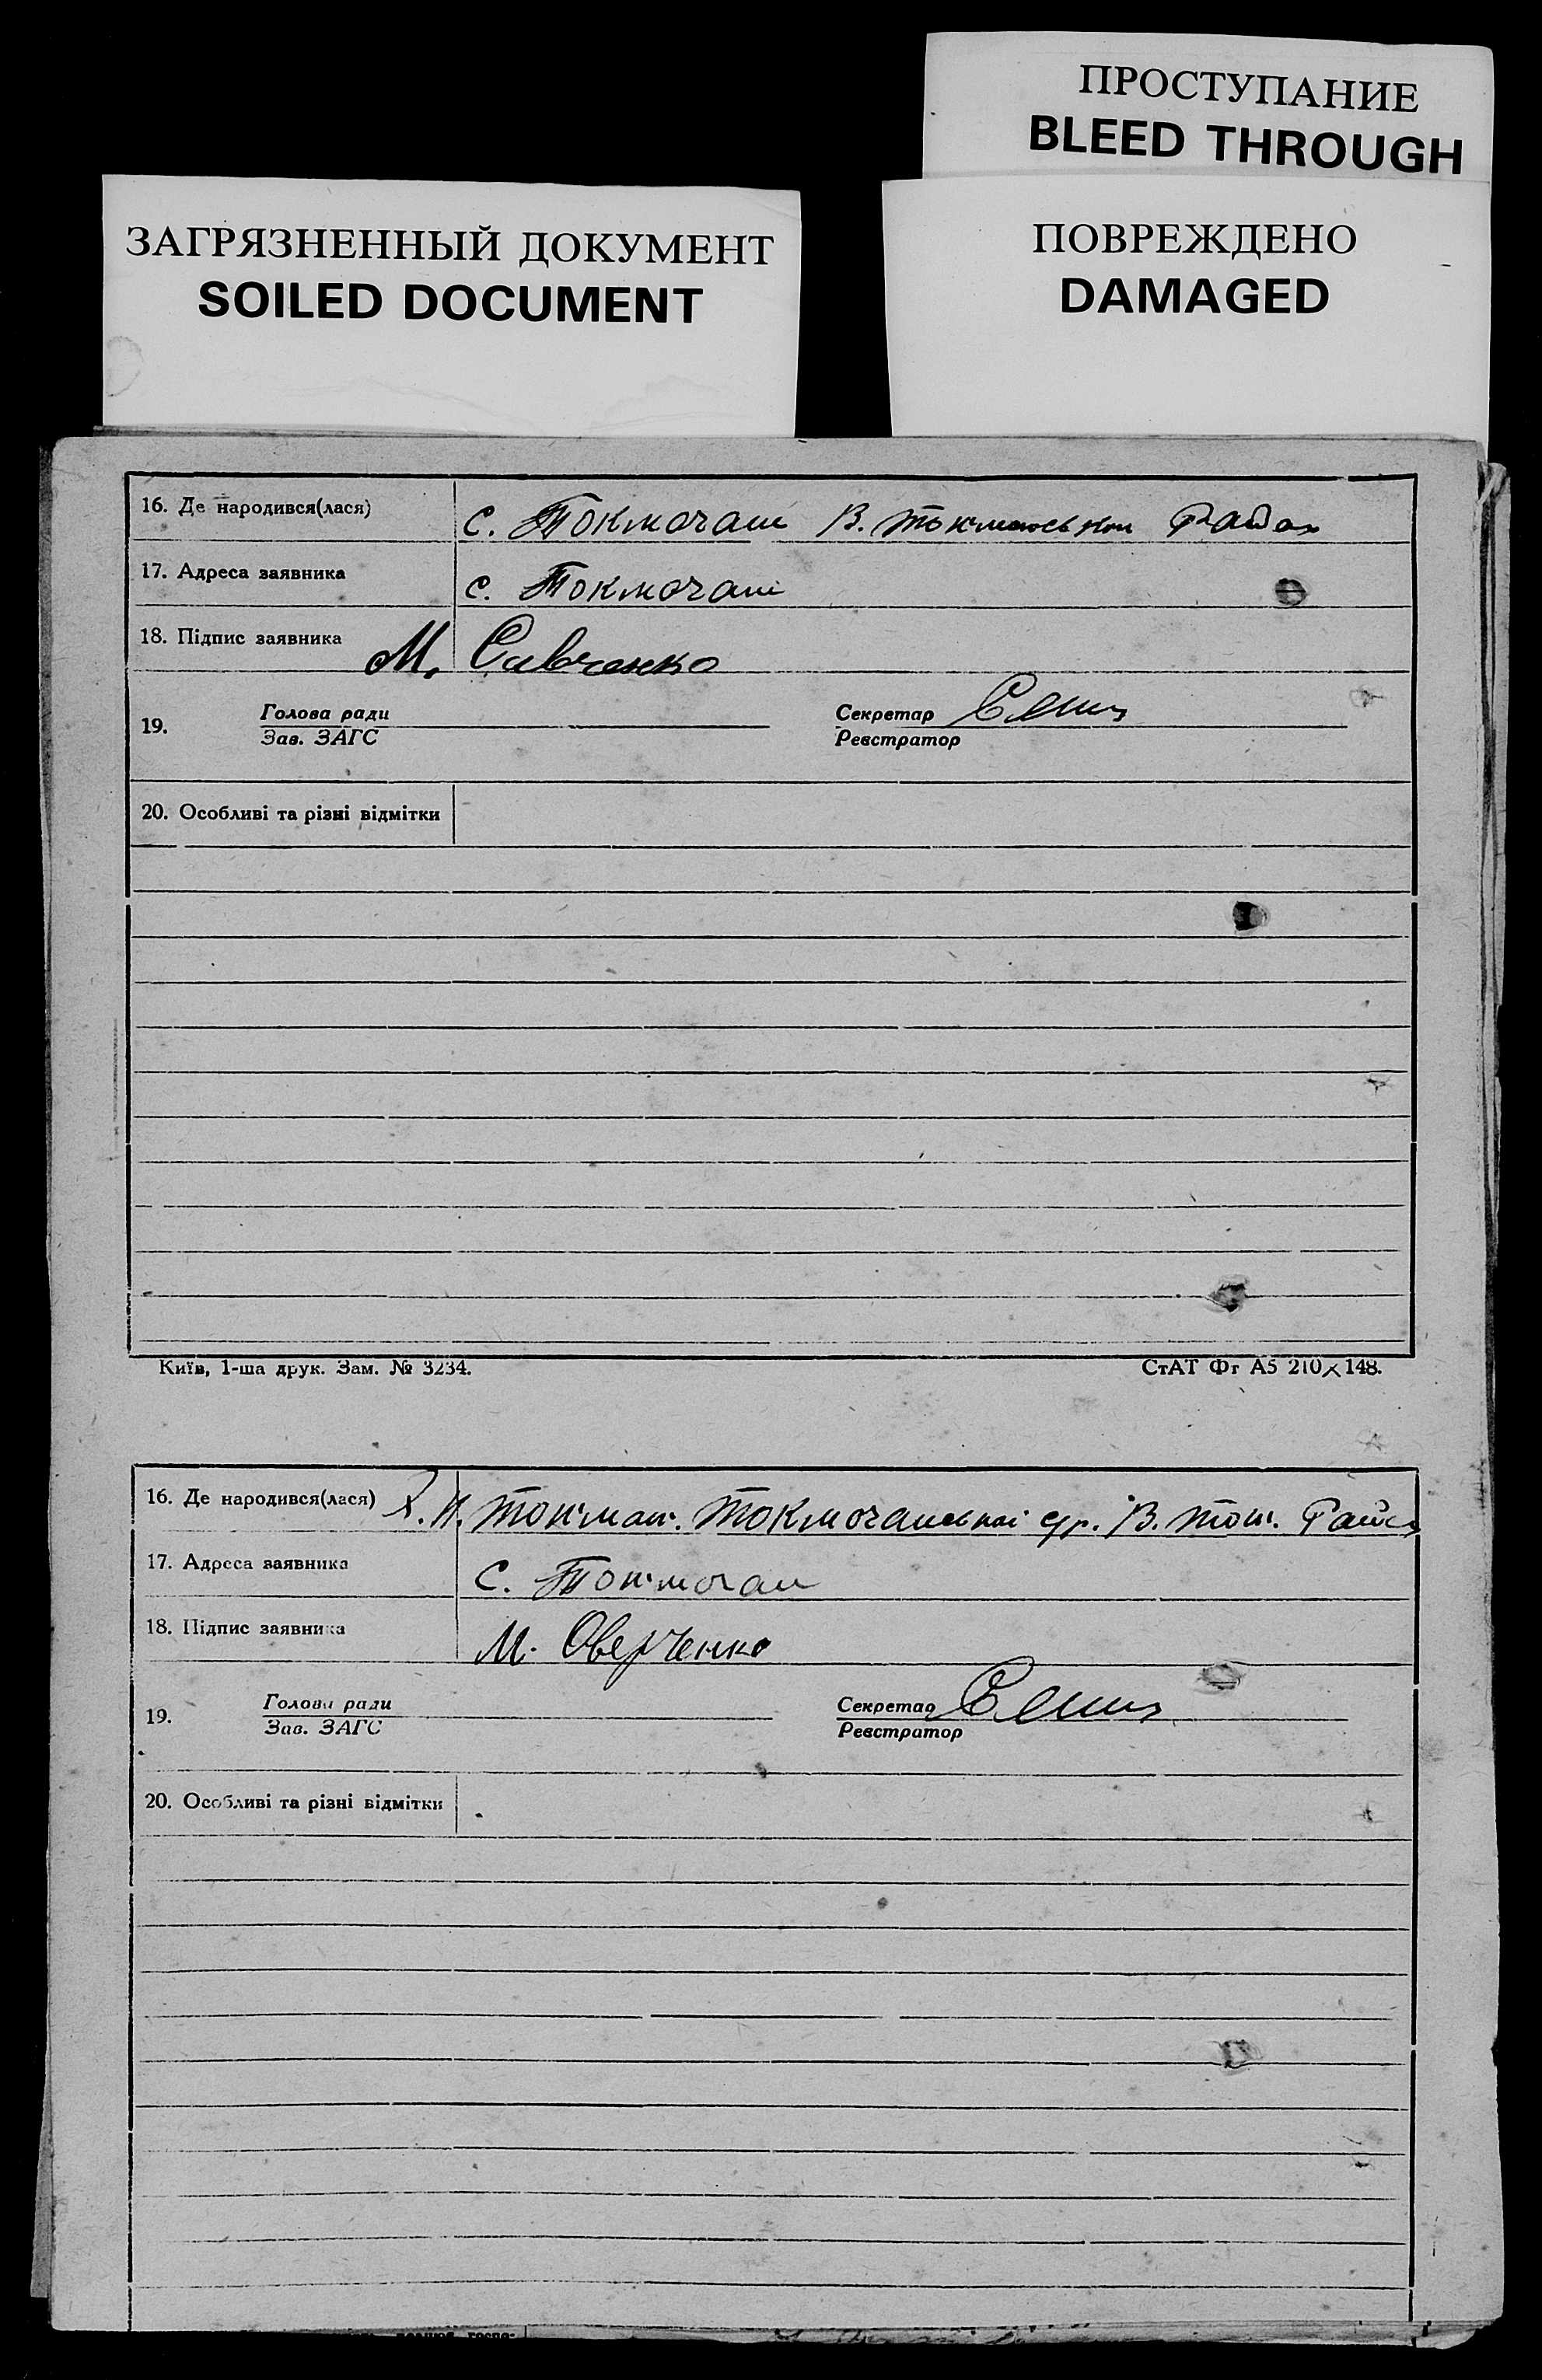 ПРОСТУПАНИЕ
BLEED THROUGH
ЗАГРЯЗНЕННЫЙ ДОКУМЕНТ
SOILED DOCUMENT
ПОВРЕЖДЕНО
DAMAGED
16. Де народився(лася) с. Токмочані В.
17. Адреса заявника с. Токмочані
18. Підпис заявника М. Савченко
19. Голова ради Секретар
Зав. ЗАГС Реєстратор
20. Особливі та різні відмітки
Київ, 1-ша друк. Зам. № 3234. СтАТ Фг А5 210×148.
16. Де народився(лася) В.
17. Адреса заявника с.
18. Підпис заявника М. Оверченко
19. Голова ради Секретар
Зав. ЗАГС Реєстратор
20. Особливі та різні відмітки